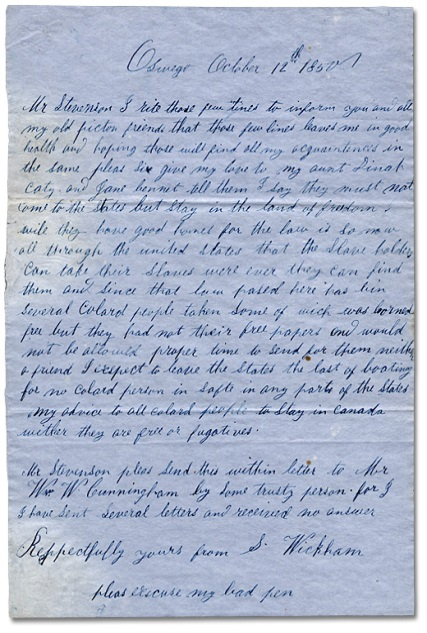 Oswego October 12th 1850
Mr Stevenson I rite those few lines to inform you and all
my old picton friends that those few lines leaves me in good
health and hoping those will find all my acquaintences in
the same pleas sir give my love to my aunt Dinah
Caty and Jane bennet tell them I say they must not
come to the states but stay in the land of freedom
wile they have good home for the law is so now
all through the united states that the slave holders
can take their slaves were ever they can find
them and since that law pased here has bin
several colard people taken some of wich was borned
free but they had not their free papers and would
not be allowed proper time to send for them neither
a friend I expect to leave the states the last of boating
for no colard person in safte in any parts of the states
my advice to all colard people to stay in canada
wither they are free or fugatives.
Mr Stevenson pleas send this within letter to Mr
Wm W Cunningham by some trusty person. for I
I have sent several letters and received no answer
Reppectfully yours from S. Wickham
pleas excuse my bad pen